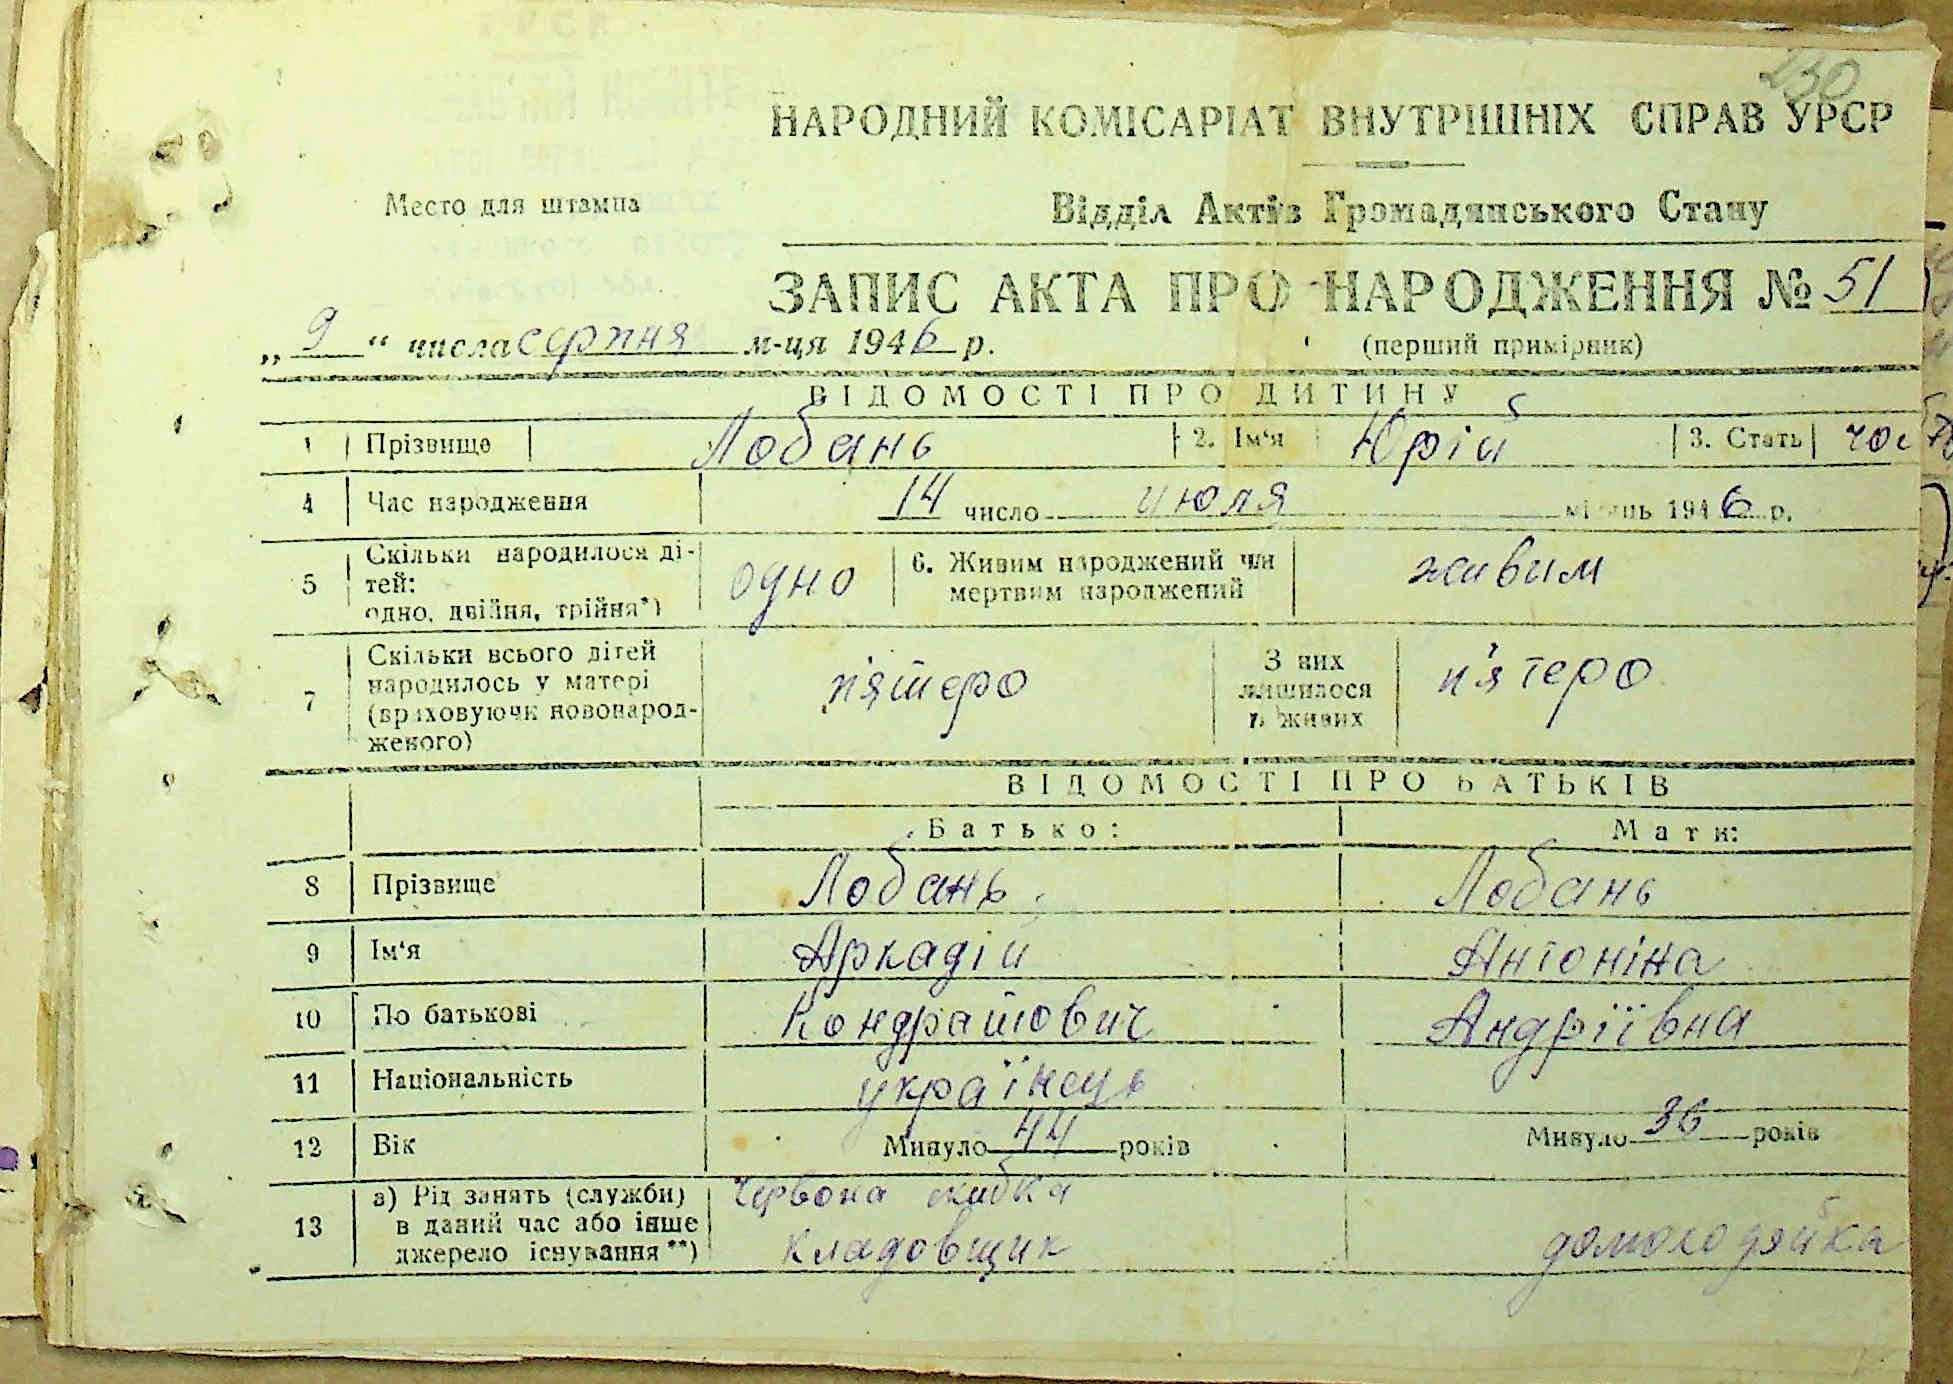 250
НАРОДНИЙ КОМІСАРІАТ ВНУТРІШНІХ СПРАВ УРСР
Место для штампа
Відділ Актів Громадянського Стану
ЗАПИС АКТА ПРО НАРОДЖЕННЯ № 51
„ 9 “ числа серпня м-ця 1946 р. (перший примірник)
ВІДОМОСТІ ПРО ДИТИНУ
1 Прізвище Лобань 2. Ім‘я Юрій 3. Стать
4 Час народження 14 число июля місяць 1946 р.
5 Скільки народилося ді-
тей:
одно, двійня, трійня*) одно 6. Живим народжений чи
мертвим народжений живим
7 Скільки всього дітей
народилось у матері
(враховуючи новонарод-
женого) п'ятеро З них
лишилося
в живих п'ятеро
ВІДОМОСТІ ПРО БАТЬКІВ
Батько: Мати:
8 Прізвище Лобань Лобань
9 Ім‘я Аркадій Антоніна
10 По батькові Кондратович Андріївна
11 Національність українець
12 Вік Минуло 44 років Минуло 36 років
13 а) Рід занять (служби)
в даний час або інше
джерело існування**) Червона скибка
кладовщик